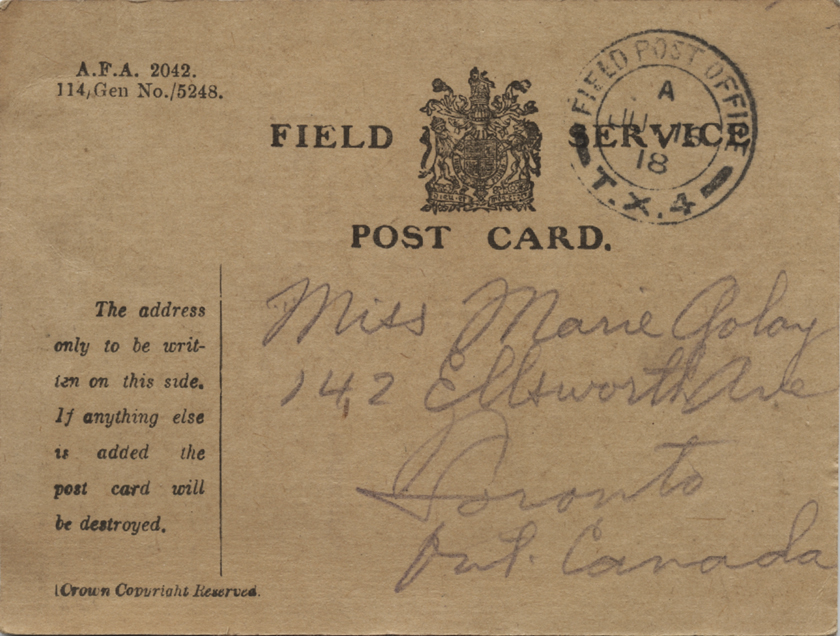 A.F.A. 2042.
114/Gen No./5248.
FIELD SERVICE
POST CARD.
FIELD POST OFFICE
A
18
T.X.4
The address
only to be writ-
ten on this side.
If anything else
is added the
post card will
be destroyed.
(Crown Copyright Reserved.
Miss Marie Golay
142 Ellsworth Ave
Toronto
Ont. Canada